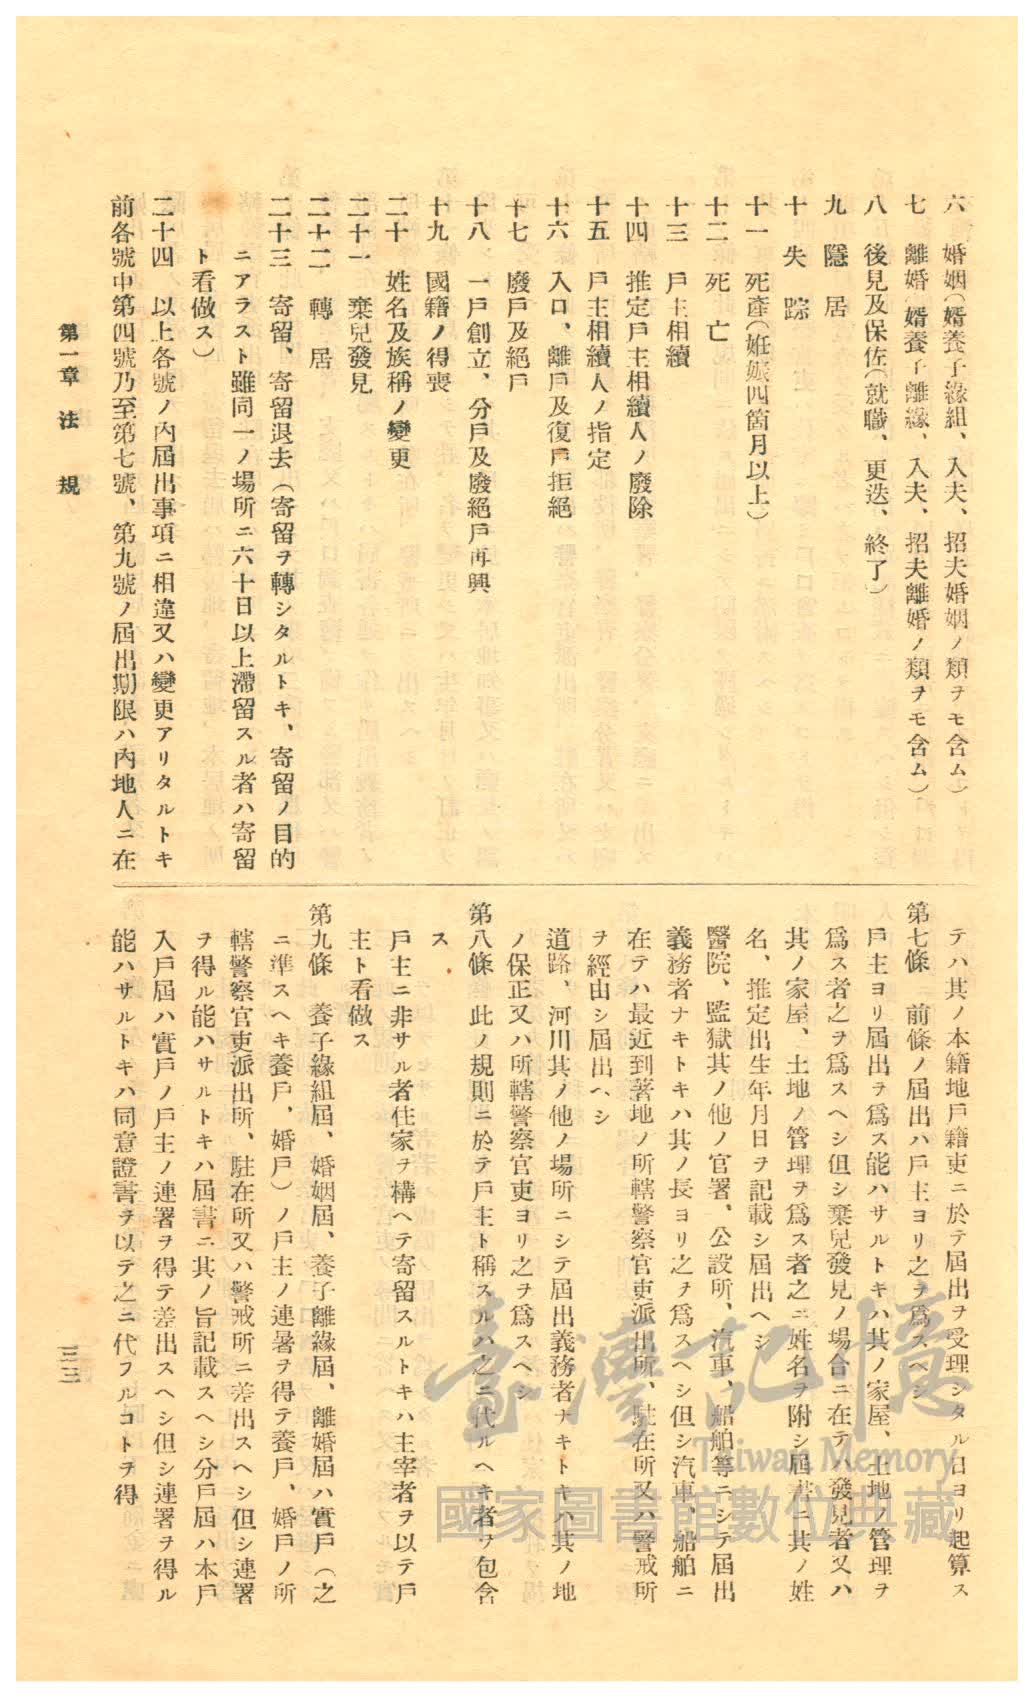 六　婚姻（婿養子緣組、入夫、招夫婚姻ノ類ヲモ含ム）
七　離婚（婿養子離緣、入夫、招夫離婚ノ類ヲモ含ム）
八　後見及保佐（就職、更迭、終了）
九　隱　居
十　失　踪
十一　死產（姙娠四箇月以上）
十二　死　亡
十三　戶主相續
十四　推定戶主相續人ノ廢除
十五　戶主相續人ノ指定
十六　入口、離戶及復戶拒絕
十七　廢戶及絕戶
十八　一戶創立、分戶及廢絕戶再興
十九　國籍ノ得喪
二十　姓名及族稱ノ變更
二十一　棄兒發見
二十二　轉　居
二十三　寄留、寄留退去（寄留ヲ轉シタルトキ、寄留ノ目的
ニアラスト雖同一ノ場所ニ六十日以上滯留スル者ハ寄留
ト看做ス）
二十四　以上各號ノ內屆出事項ニ相違又ハ變更アリタルトキ
前各號中第四號乃至第七號、第九號ノ屆出期限ハ內地人ニ在
テハ其ノ本籍地戶籍吏ニ於テ屆出ヲ受理シタル日ヨリ起算ス
第七條　前條ノ屆出ハ戶主ヨリ之ヲ爲スヘシ
戶主ヨリ屆出ヲ爲ス能ハサルトキハ其ノ家屋、土地ノ管理ヲ
爲ス者之ヲ爲スヘシ但シ棄兒發見ノ場合ニ在テハ發見者又ハ
其ノ家屋、土地ノ管理ヲ爲ス者之ニ姓名ヲ附シ屆書ニ其ノ姓
名、推定出生年月日ヲ記載シ屆出ヘシ
醫院、監獄其ノ他ノ官署、公設所、汽車、船舶等ニシテ屆出
義務者ナキトキハ其ノ長ヨリ之ヲ爲スヘシ但シ汽車、船舶ニ
在テハ最近到著地ノ所轄警察官吏派出所、駐在所又ハ警戒所
ヲ經由シ屆出ヘシ
道路、河川其ノ他ノ場所ニシテ屆出義務者ナキトキハ其ノ地
ノ保正又ハ所轄警察官吏ヨリ之ヲ爲スヘシ
第八條　此ノ規則ニ於テ戶主ト稱スルハ之ニ代ルヘキ者ヲ包含
ス
戶主ニ非サル者住家ヲ構ヘテ寄留スルトキハ主宰者ヲ以テ戶
主ト看做ス
第九條　養子緣組屆、婚姻屆、養子離緣屆、離婚屆ハ實戶（之
ニ準スヘキ養戶，婚戶）ノ戶主ノ連署ヲ得テ養戶、婚戶ノ所
轄警察官吏派出所、駐在所又ハ警戒所ニ差出スヘシ但シ連署
ヲ得ル能ハサルトキハ屆書ニ其ノ旨記載スヘシ分戶屆ハ本戶
入戶屆ハ實戶ノ戶主ノ連署ヲ得テ差出スヘシ但シ連署ヲ得ル
能ハサルトキハ同意證書ヲ以テ之ニ代フルコトヲ得
第一章　法　規
三三
臺灣記憶
Taiwan Memory
國家圖書館數位典藏